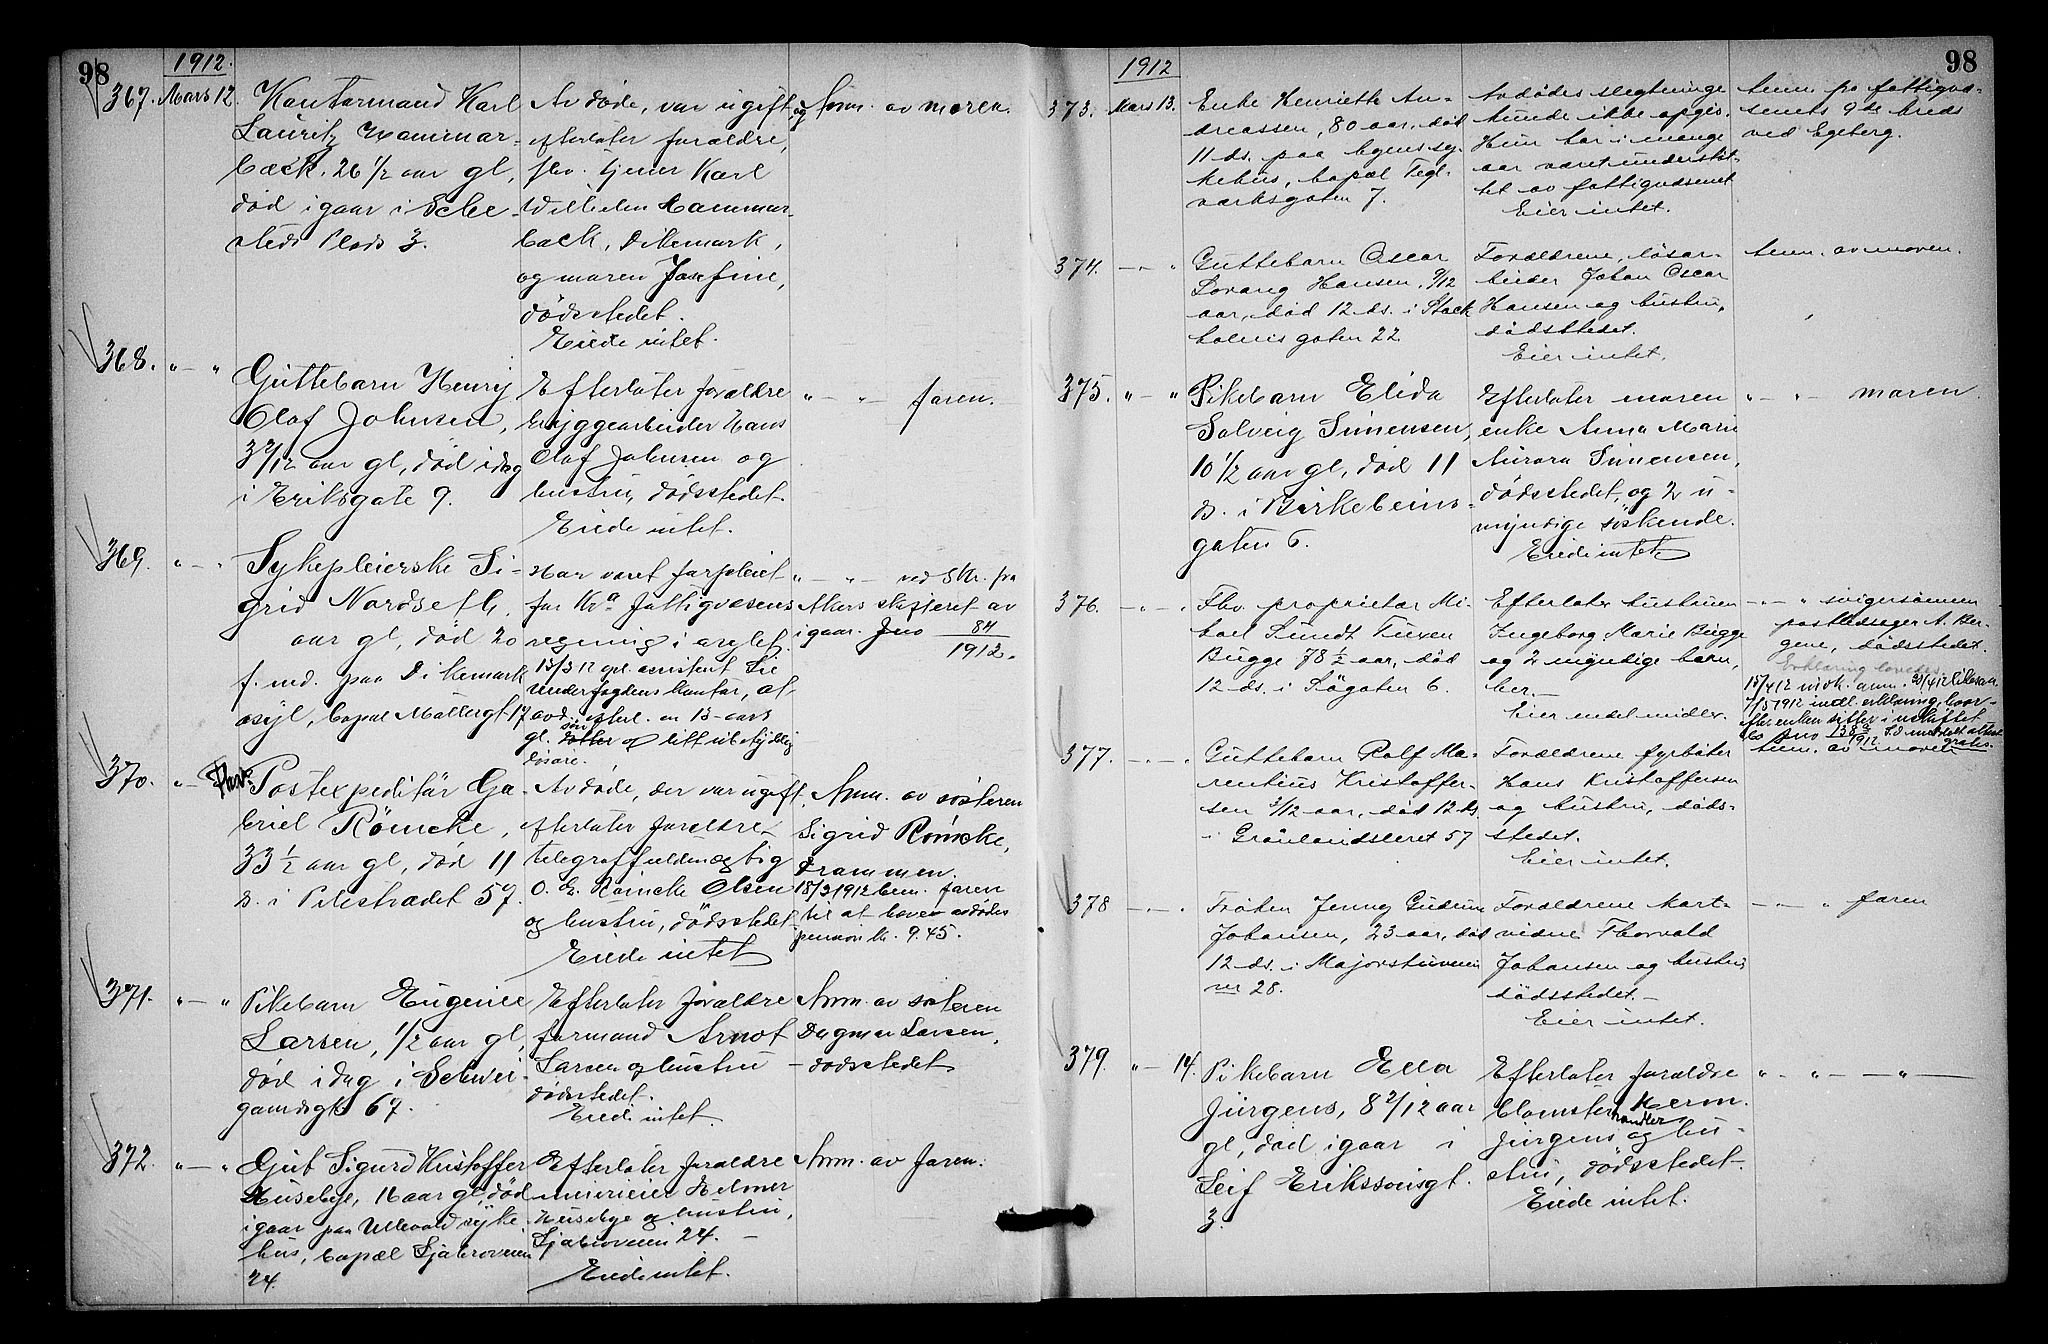 98
1912.
367. Mars 12.
Kontormand Karl
Lauritz Hammar-
back. 26 1/2 aar gl,
død igaar i Sche-
steds Plads 3.
Avdøde, var ugift, og
efterlater forældre,
fhv. tjener Karl
Wilhelm Hammar-
back, Dikemark,
og moren Josefine,
dødsstedet.
Eiede intet.
Anm. av moren.
368. " — "
Guttebarn Henry
Olaf Johnsen,
3 2/12 aar gl, død idag
i Eriksgate 9.
Efterlater forældre
bryggearbeider Hans
Olaf Johnsen og
hustru, dødsstedet.
Eiede intet.
" — " — faren.
369. " — "
Sykepleierske Si-
grid Nordseth,
aar gl, død 20
f. md. paa Dikemark
asyl, bopæl Møllergt 17
Har været forpleiet
for Kra fattigvæsens
regning i asylet.
15/3 12 opl. assistent Lie
Underfogdens kontor, at
avd. efterl. en 13-aars
gl. søn og litt ubetydelig
løsøre.
" — " — ved skr. fra
Akers skifteret av
igaar. Jno 84
1912.
370. " — "
Postexpeditør Ga-
briel Römcke,
33 1/2 aar gl, død 11
ds. i Pilestrædet 57.
Avdøde, der var ugift,
efterlater forældre
telegraffuldmægtig
O. E. Römcke Olsen
og hustru, dødsstedet
Eiede intet
Anm. av søsteren
Sigrid Römcke,
Drammen.
18/3 1912 bem. faren
til at hæve avdødes
pension kr. 9.45.
371. " — "
Pikebarn Eugenie
Larsen, 1/2 aar gl,
død idag i Schwei-
gaardsgt 67.
Efterlater forældre
formand Arnot
Larsen og hustru
dødsstedet.
Eiede intet.
Anm. av søsteren
Dagmar Larsen,
- dødsstedet
372. " — "
Gut Sigurd Kristoffer
Huseby, 11 aar gl, død
igaar paa Ullevaal syke-
hus, bopæl Ljabroveien
24.
Efterlater forældre
murereier Helmer
Huseby og hustru,
Ljabroveien 24. —
Eiede intet.
Anm. av faren.
98
1912
373. Mars 13.
Enke Henriette An-
dreassen, 80 aar, død
11 ds. paa Egens sy-
kehus, bopæl Tegl-
verksgaten 7.
Avdødes slegtninge
kunde ikke opgis.
Hun har i mange
aar været understøt-
tet av fattigvæsenet
Eier intet.
Anm. fra fattigvæ-
senets 9de kreds
ved Egeberg.
374. — " — "
Guttebarn Oscar
Lorang Hansen, 9/12
aar, død 12 ds. i Stock
holmsgaten 22.
Forældrene, løsar-
beider Johan Oscar
Hansen og hustru,
dødsstedet.
Eier intet.
Anm. av moren.
375. " — "
Pikebarn Elida
Solveig Simensen,
10 1/2 aar gl, død 11
ds. i Birkebeiner-
gaten 6.
Efterlater moren
enke Anna Marie
Aurora Simensen,
dødsstedet, og 2 u-
myndige søskende.
Eiede intet
" — " — moren.
376. — " — "
Fhv. proprietær Mi-
hael Sundt Tuxen
Bugge 78 1/2 aar, død
12 ds. i Løgaten 6.
Efterlater hustruen
Ingeborg Marie Bugge
og 2 myndige børn,
her.—
Eier endel midler.
— " — " svigersønnen
postledsager A. Ber-
gene, dødsstedet.
Erklæring lovedes
377. — " — "
Guttebarn Rolf Ma-
rentius Kristoffer-
sen 3/12 aar, død 12 ds
i Grønlandsleret 57
Forældrene fyrbøter
Hans Kristoffersen
og hustru, døds-
stedet.
Eier intet.
Anm. av moren
378 — " — "
Frøken Jenny Gudrun
Johansen, 23 aar, død
12 ds. i Majorstuveien
nr 28.
Forældrene kart-
vidne Thorvald
Johansen og hustru
dødsstedet.—
Eier intet.
— " — " faren
379. " — 14.
Pikebarn Ella
Jürgens, 8 2/12 aar
gl, død igaar i
Leif Erikssønsgt.
3.
Efterlater forældre
blomsterhandler Herm.
Jürgens og hu-
stru, dødsstedet.
Eiede intet.
" — " — " —